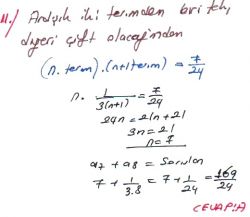 11-/ Ardışık iki terimden biri tek,
diğeri çift olacağından
(n. terim).(n+1 terim) = 7/24
n. 1/3(n+1) = 7/24
24n = 21n + 21
3n = 21
n = 7
a7 + a8 = Sorulan
7 + 1/3.8 = 7 + 1/24 = 169/24
CEVAP: A